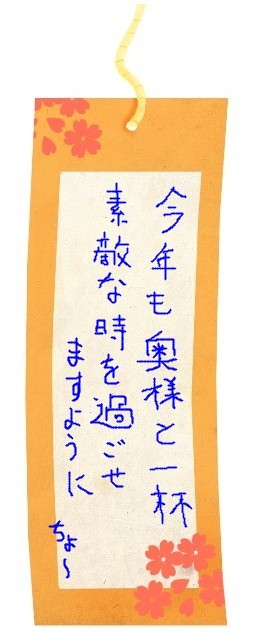 今年も奥様と一杯
素敵な時を過ごせ
ますように
ちょ～